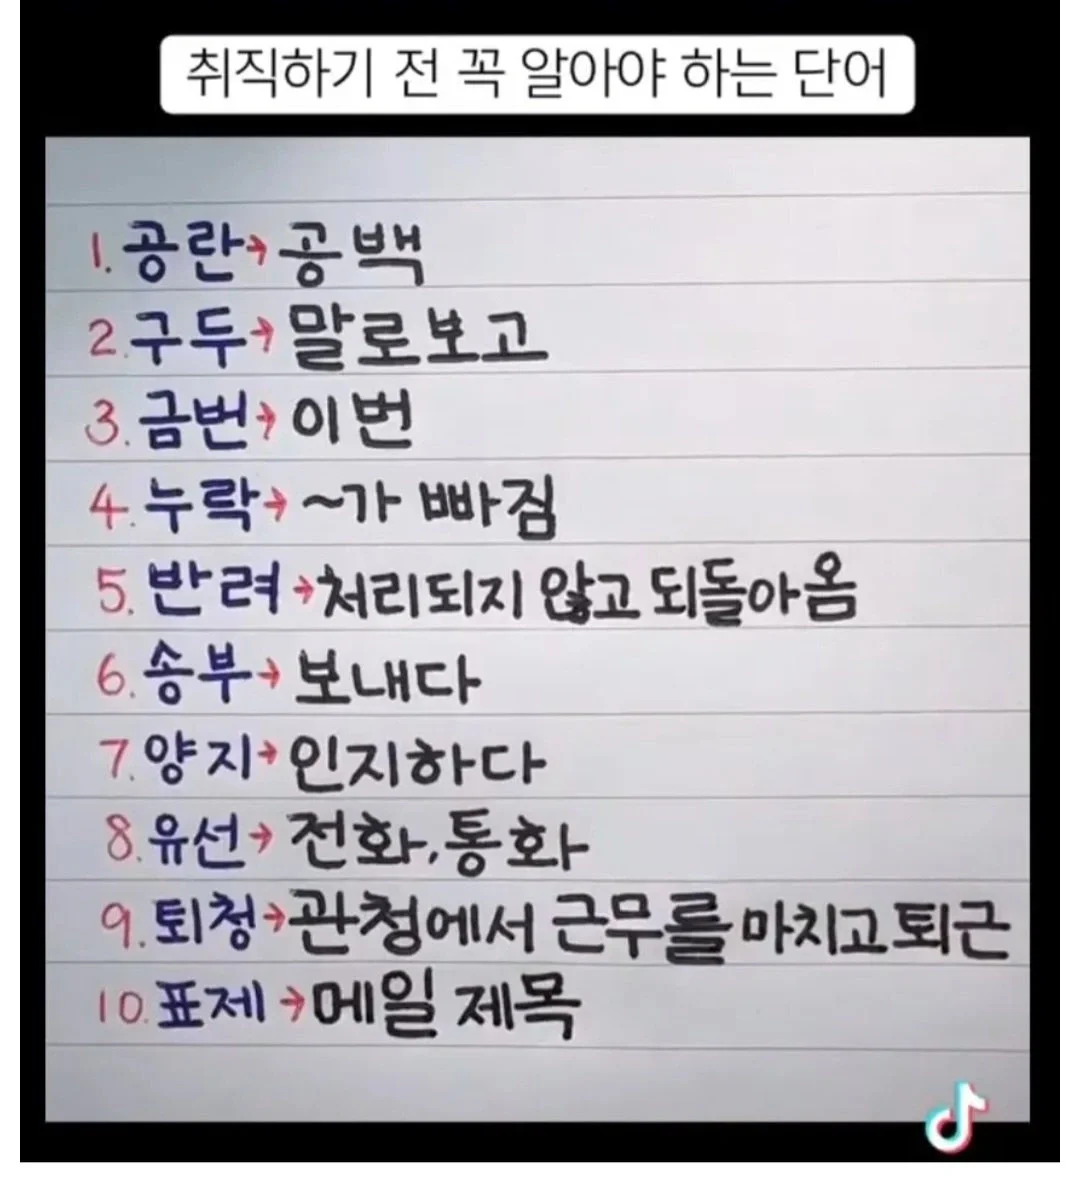 취직하기 전 꼭 알아야 하는 단어
1. 공란→공백
2. 구두→말로보고
3. 금번→이번
4. 누락→~가 빠짐
5. 반려→처리되지 않고 되돌아옴
6. 송부→보내다
7. 양지→인지하다
8. 유선→전화, 통화
9. 퇴청→관청에서 근무를 마치고 퇴근
10. 표제→메일 제목